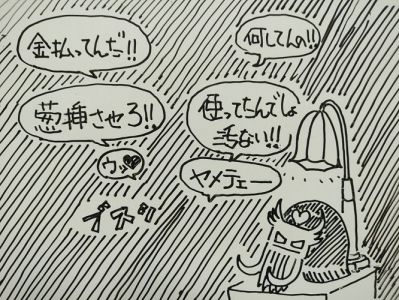 何してんの!!
金払ってんだ!!
使ってちんでしょ
汚ない!!
葱挿させろ!!
ヤメテェー
ウッ♥